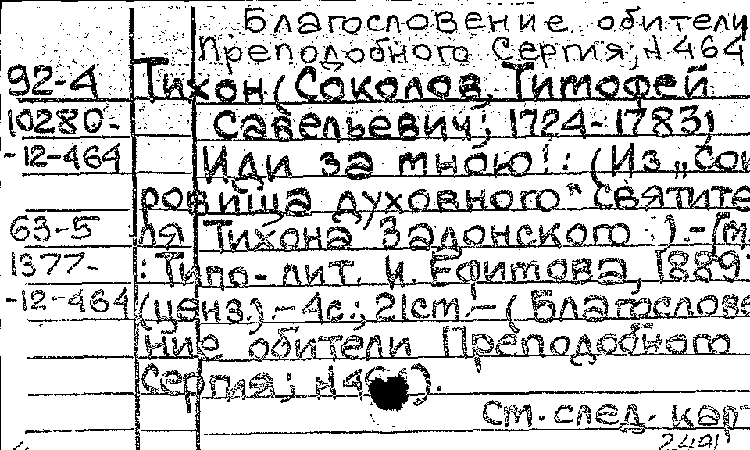 Благословение обители
Преподобного Сергия; N 464
92-4 Тихон (Соколов, Тимофей
10280- Савельевич; 1724-1783)
-12-464 Иди за мною!: (Из „Сок
ровища духовного" святите
63-5 ля Тихона Задонского).-[М.
1377- : Типо-лит. И. Ефимова, 1889
-12-464 (ценз.).-4с.; 21см.-(Благослове
ние обители Преподобного
Сергия; N 464).
См. след. кар
2491